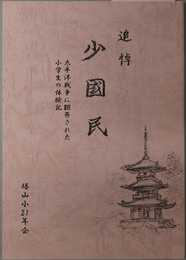 追悼
少國民
太平洋戦争に翻弄された
小学生の体験記
塔山小21年会